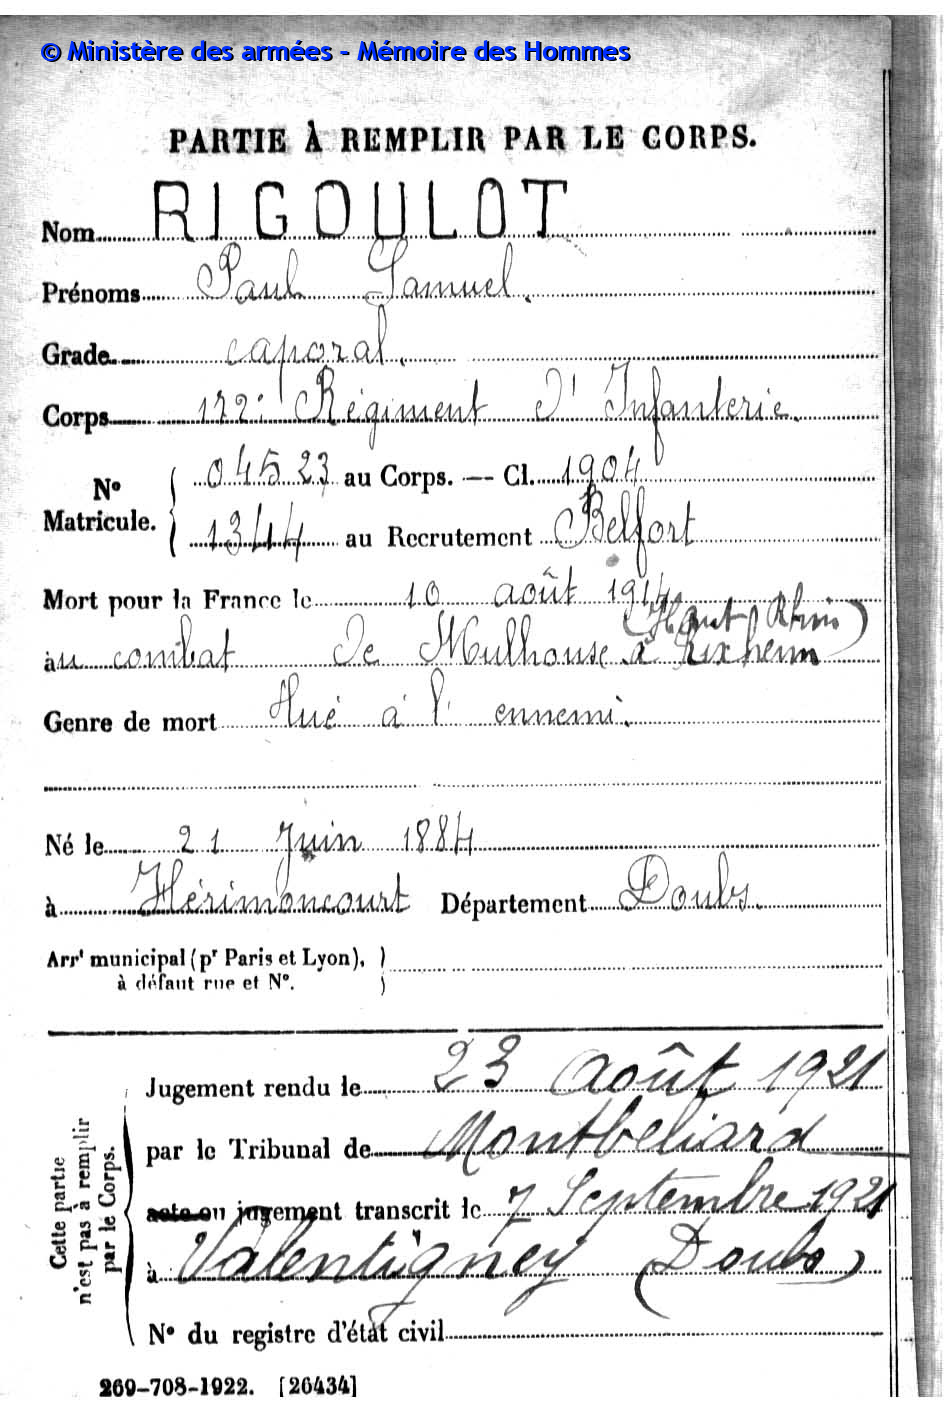 © Ministère des armées - Mémoire des Hommes
PARTIE À REMPLIR PAR LE CORPS.
Nom RIGOULOT
Prénoms Paul Samuel.
Grade caporal.
Corps 172e Régiment d'Infanterie.
N° Matricule. 04523 au Corps. — Cl. 1904
1344 au Recrutement Belfort
Mort pour la France le 10 août 1914
(Haut Rhin)
au combat de Mulhouse à Rixheim
Genre de mort Tué à l'ennemi.
Né le 21 Juin 1884
à Hérimoncourt Département Doubs.
Arrt municipal (pr Paris et Lyon),
à défaut rue et N°.
Jugement rendu le 23 Août 1921
par le Tribunal de Montbéliard
acte ou jugement transcrit le 7 Septembre 1921
à Valentigney (Doubs)
N° du registre d'état civil
Cette partie
n'est pas à remplir
par le Corps.
269-708-1922. [26434]